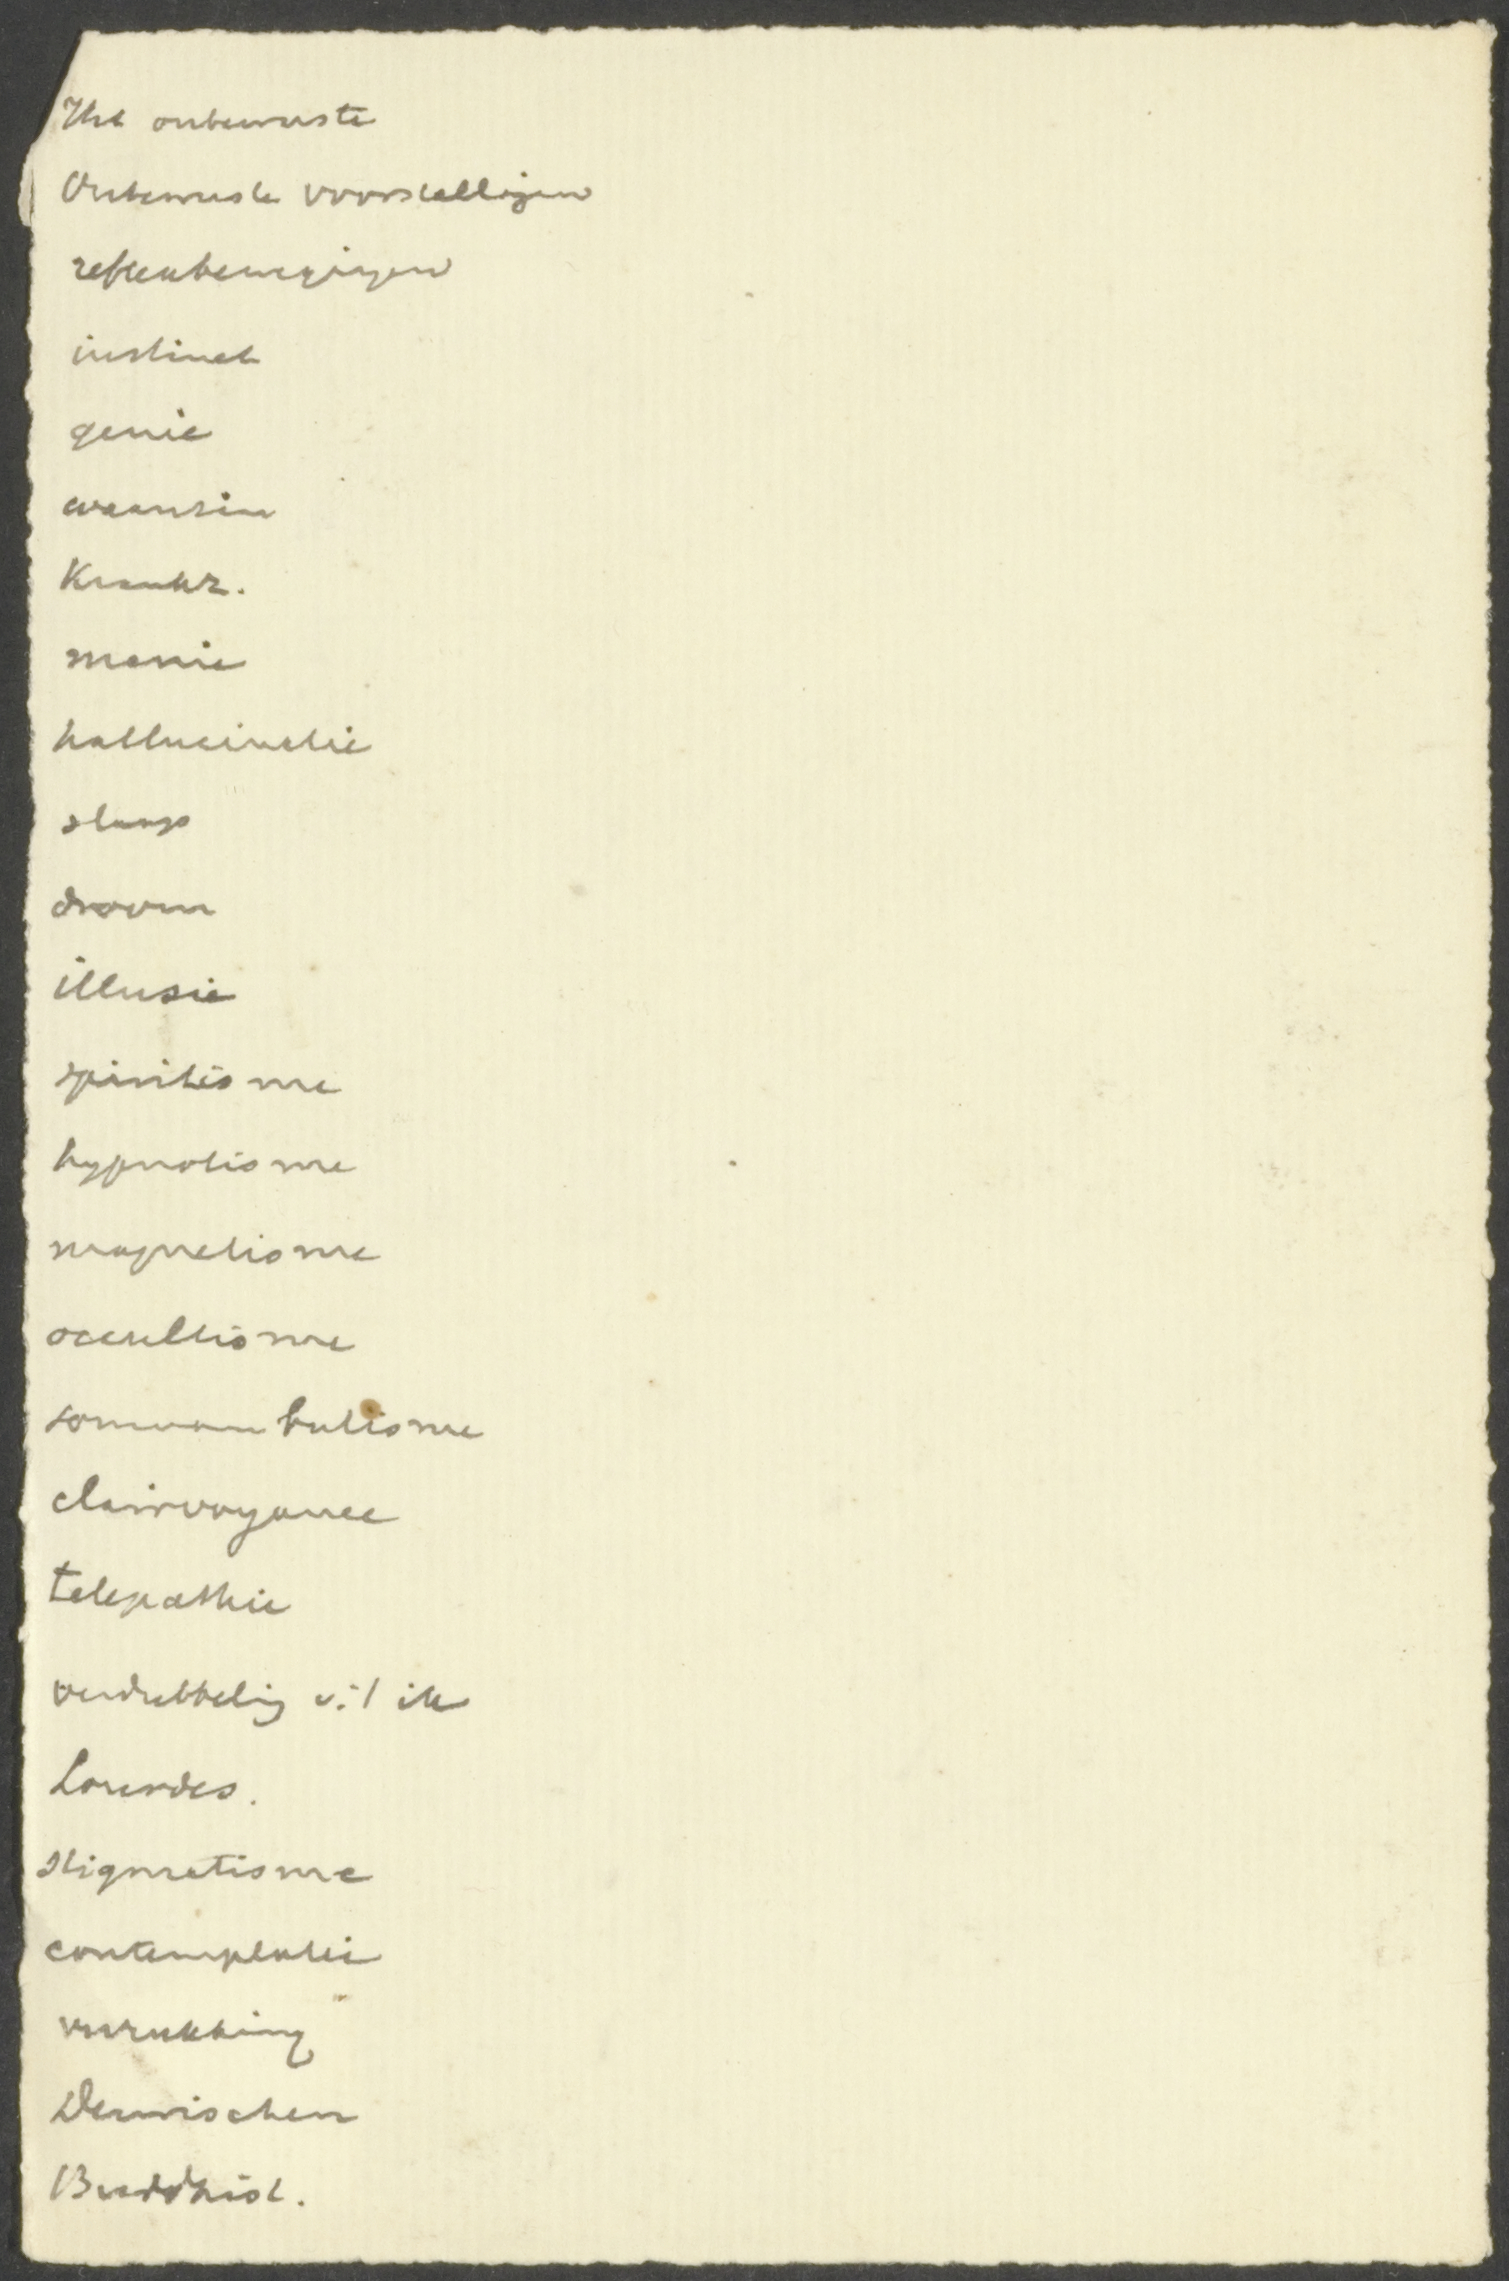 Het onbewuste
Onbewuste voorstellingen
reflexbewegingen
instinct
genie
waanzin
Krankz.
manie
hallucinatie
slaap
droom
illusie
spiritisme
hypnotisme
magnetisme
occultisme
somnambulisme
clairvoyance
telepathie
verdubbeling v. 't ik
Lourdes.
stigmatisme
contemplatie
verrukking
Derwischen
Buddhist.